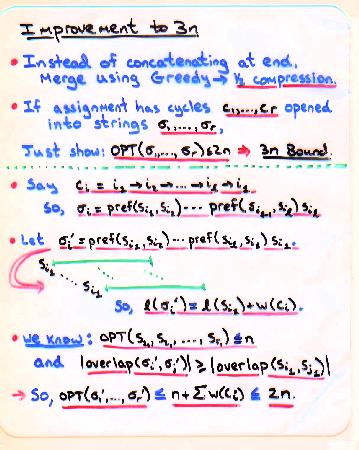 Improvement to 3n
• Instead of concatenating at end,
Merge using Greedy → ½ compression.
• If assignment has cycles c₁,...,cᵣ opened
into strings σ₁,...,σᵣ,
Just show: OPT(σ₁,...,σᵣ) ≤ 2n ⇒ 3n Bound.
• Say cᵢ = i₁→i₂→...→iₗ→i₁
So, σᵢ = pref(Sᵢ₁,Sᵢ₂)...pref(Sᵢₗ₋₁,Sᵢₗ)Sᵢₗ
• Let σᵢ' = pref(Sᵢ₁,Sᵢ₂)...pref(Sᵢₗ,Sᵢ₁)Sᵢ₁.
Sᵢ₁
Sᵢ₁
So, l(σᵢ') = l(Sᵢ₁) + w(cᵢ).
• We know: OPT(S₁₁,S₂₁,...,Sᵣ₁) ≤ n
and |overlap(σᵢ',σⱼ')| ≥ |overlap(Sᵢ₁,Sⱼ₁)|
→ So, OPT(σ₁',...,σᵣ') ≤ n + Σw(cᵢ) ≤ 2n.